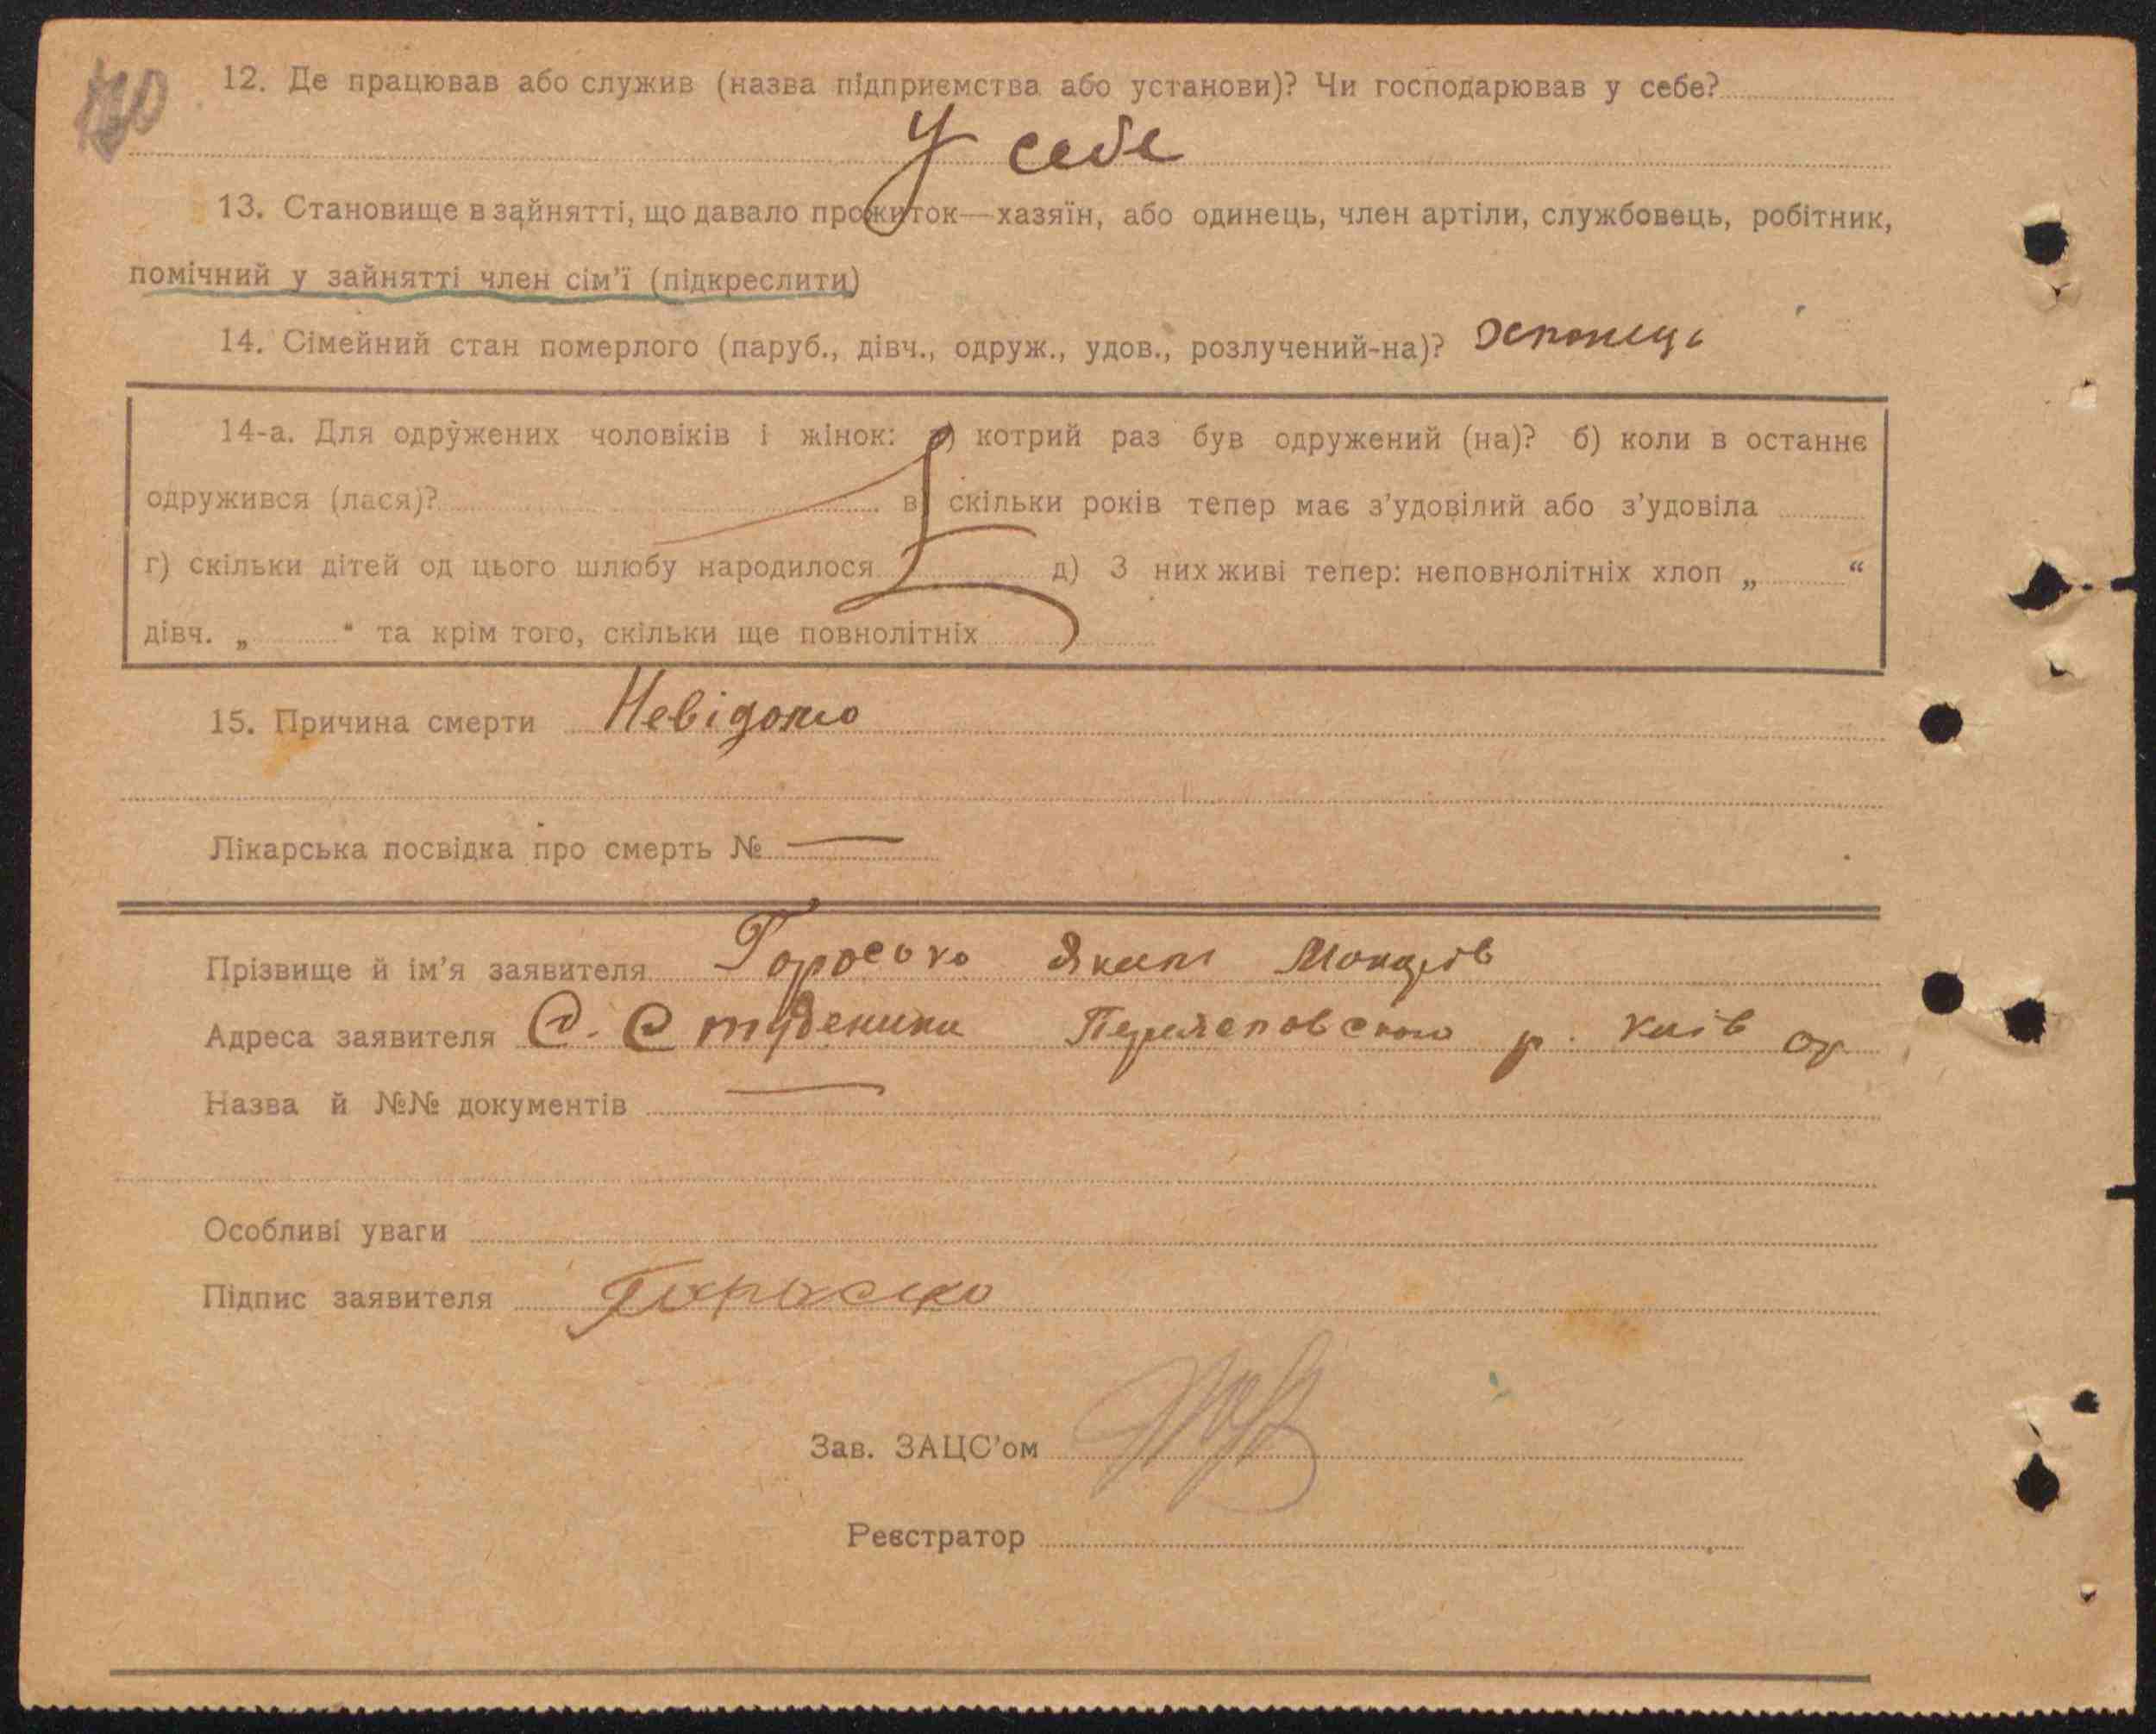 12. Де працював або служив (назва підприємства або установи)? Чи господарював у себе?
У себе
13. Становище в зайнятті, що давало прожиток—хазяїн, або одинець, член артіли, службовець, робітник,
помічний у зайнятті член сім'ї (підкреслити)
14. Сімейний стан померлого (паруб., дівч., одруж., удов., розлучений-на)? Хлопець
14-а. Для одружених чоловіків і жінок: а) котрий раз був одружений (на)? б) коли в останнє
одружився (лася)? в) скільки років тепер має з'удовілий або з'удовіла
г) скільки дітей од цього шлюбу народилося д) З них живі тепер: неповнолітніх хлоп „ “
дівч. „ “ та крім того, скільки ще повнолітніх
15. Причина смерти Невідомо
Лікарська посвідка про смерть № —
Прізвище й ім'я заявителя Яким
Адреса заявителя С. Студеники р. Київ ок
Назва й №№ документів —
Особливі уваги
Підпис заявителя
Зав. ЗАЦС'ом
Реєстратор